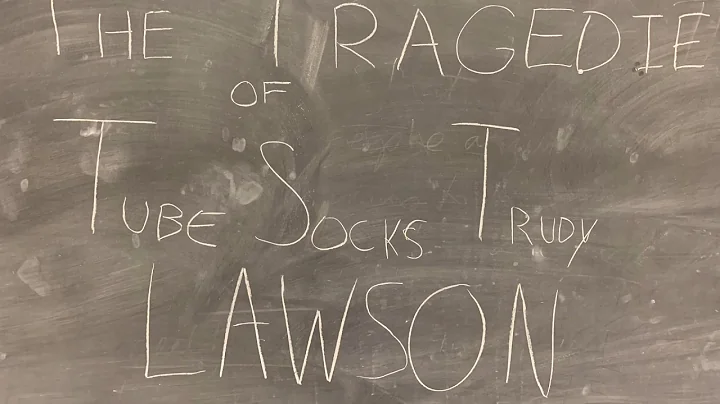 THE TRAGEDIE
OF
TUBE SOCKS TRUDY
LAWSON